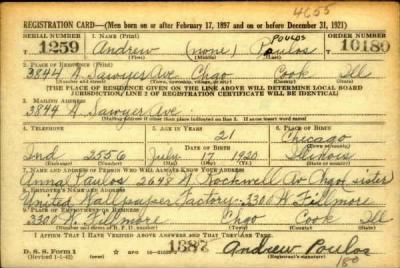 4655
REGISTRATION CARD—(Men born on or after February 17, 1897 and on or before December 31, 1921)
SERIAL NUMBER 1. NAME (Print) POULOS ORDER NUMBER
T 1259 Andrew (none) Poulos T 10180
(First) (Middle) (Last)
2. PLACE OF RESIDENCE (Print)
3844 N Sawyer Ave Chgo Cook Ill
(Number and street) (Town, township, village, or city) (County) (State)
[THE PLACE OF RESIDENCE GIVEN ON THE LINE ABOVE WILL DETERMINE LOCAL BOARD
JURISDICTION; LINE 2 OF REGISTRATION CERTIFICATE WILL BE IDENTICAL]
3. MAILING ADDRESS
3844 N Sawyer Ave
[Mailing address if other than place indicated on line 2. If same insert word same]
4. TELEPHONE 5. AGE IN YEARS 6. PLACE OF BIRTH
21 Chicago
DATE OF BIRTH (Town or county)
Ind 2556 July 17 1920 Illinois
(Exchange) (Number) (Mo.) (Day) (Yr.) (State or country)
7. NAME AND ADDRESS OF PERSON WHO WILL ALWAYS KNOW YOUR ADDRESS
Anna Paulos 2648 N Rockwell Av Chgo sister
8. EMPLOYER'S NAME AND ADDRESS
United Wallpaper Factory-3300 W Fillmore
9. PLACE OF EMPLOYMENT OR BUSINESS
3300 W Fillmore Chgo Cook Ill
(Number and street or R. F. D. number) (Town) (County) (State)
I AFFIRM THAT I HAVE VERIFIED ABOVE ANSWERS AND THAT THEY ARE TRUE.
D. S. S. Form 1 1387 Andrew Poulos
(Revised 1-1-42) (over) GPO (Registrant's signature)
180